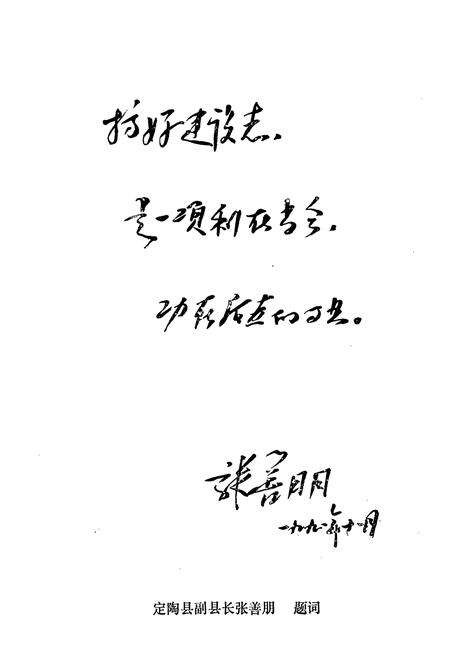 搞好建设志，
是一項利在当今，
功在后世的事业。
張善朋
一九九年十一月
定陶县副县长张善朋 题词